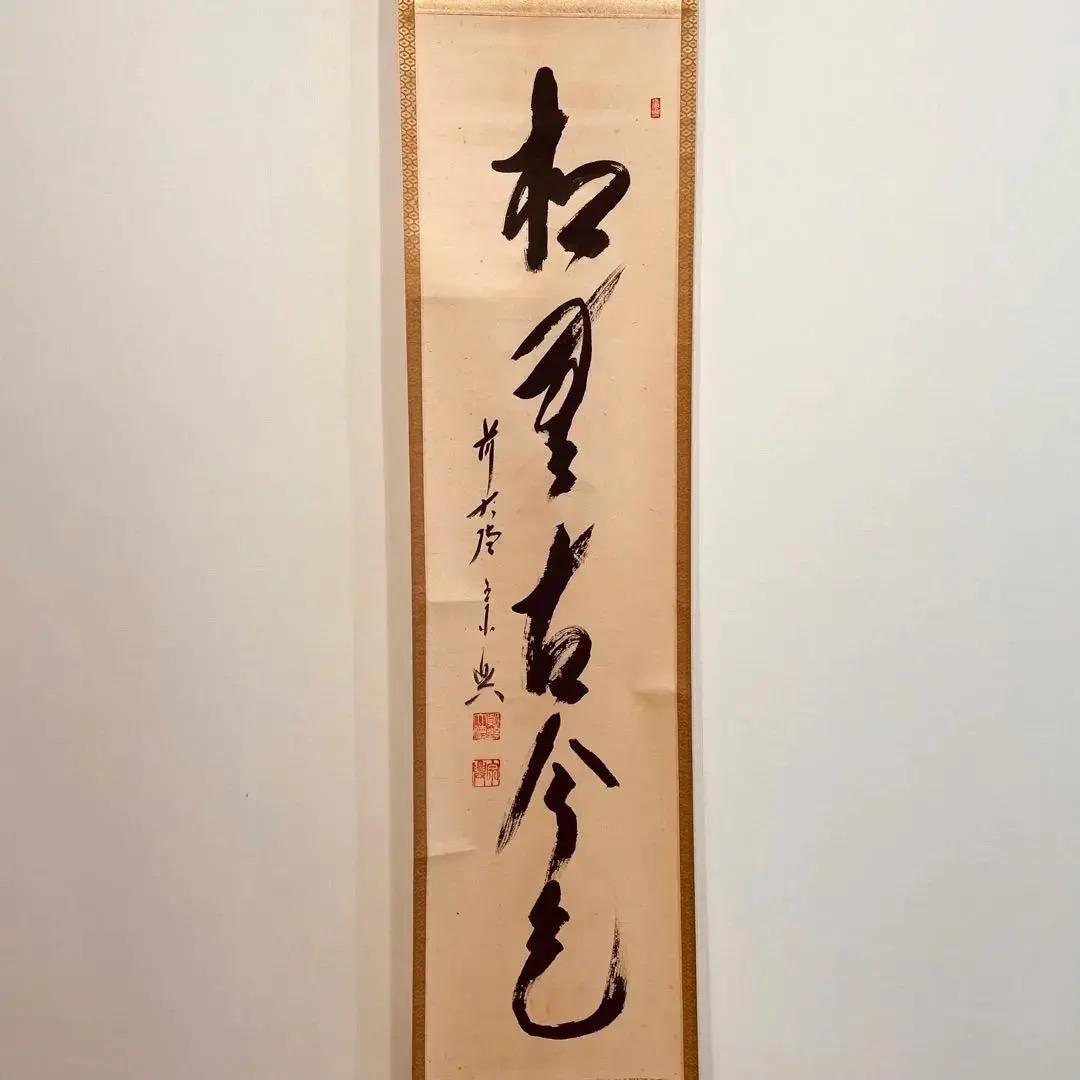 松無古今色
前大徳 宗興